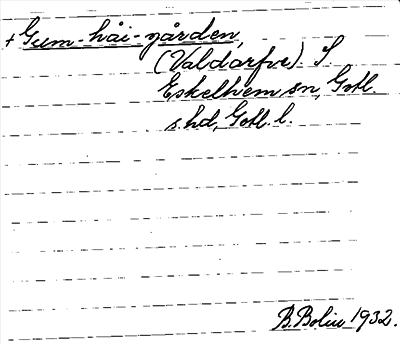 + Gum-håi-gården,
(Valdarfve) S.
Eskelhem sn, Gotl.
s. hd, Gotl. l.
B. Bolin 1932.